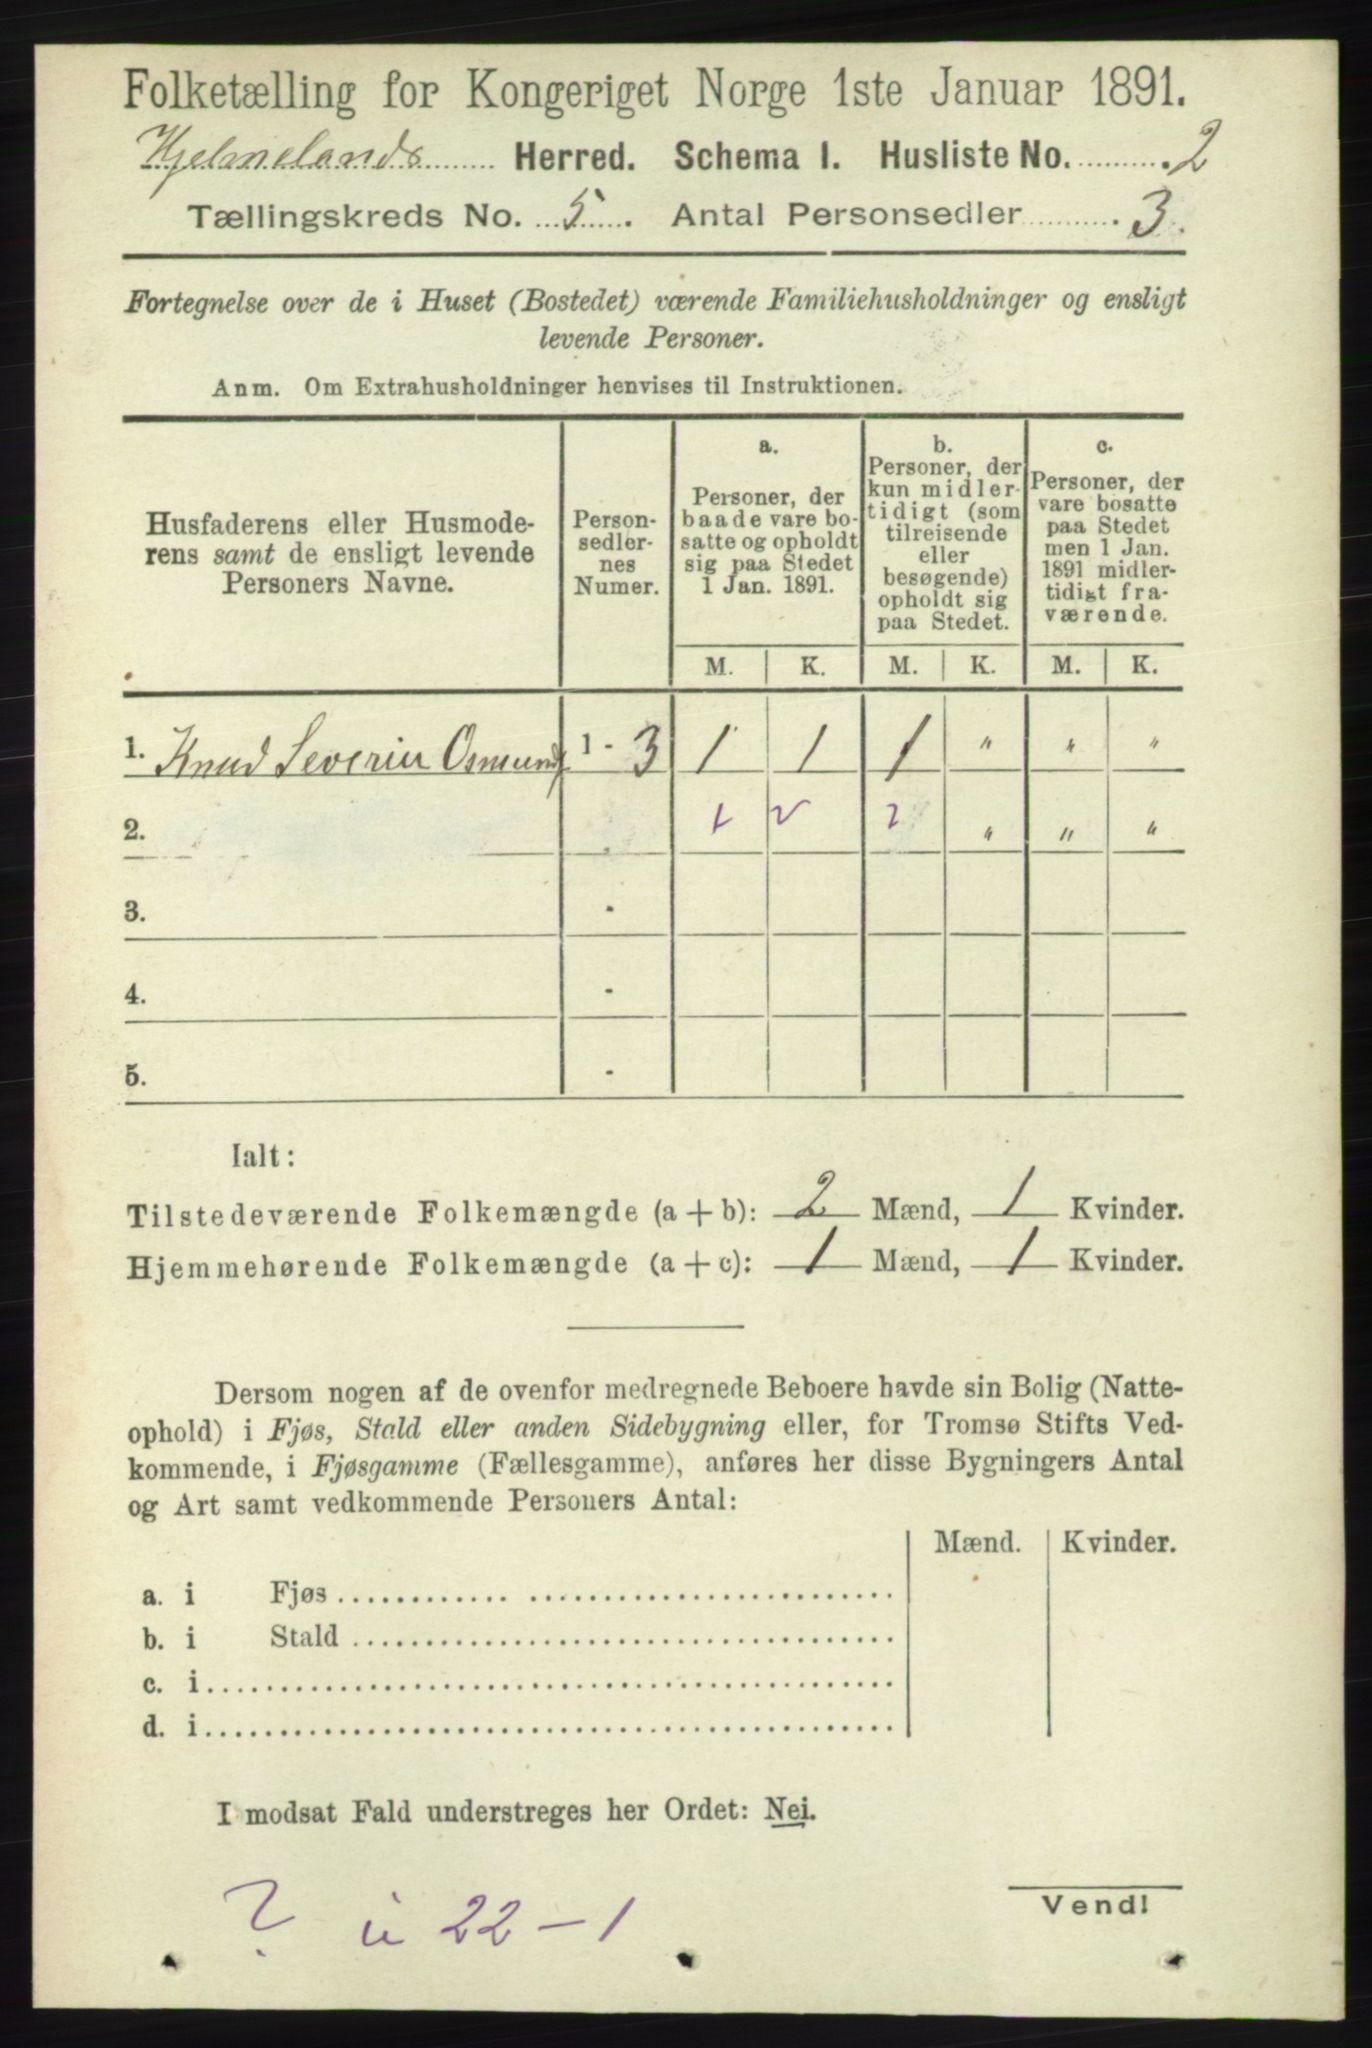 Folketælling for Kongeriget Norge 1ste Januar 1891.
Hjelmelands Herred. Schema I. Husliste No. 2
Tællingskreds No. 5. Antal Personsedler 3.
Fortegnelse over de i Huset (Bostedet) værende Familiehusholdninger og ensligt
levende Personer.
Anm. Om Extrahusholdninger henvises til Instruktionen.
Husfaderens eller Husmode-
rens samt de ensligt levende
Personers Navne.
Person-
sedler-
nes
Numer.
a.
Personer, der
baade vare bo-
satte og opholdt
sig paa Stedet
1 Jan. 1891.
b.
Personer, der
kun midler-
tidigt (som
tilreisende
eller
besøgende)
opholdt sig
paa Stedet.
c.
Personer, der
vare bosatte
paa Stedet
men 1 Jan.
1891 midler-
tidigt fra-
værende.
M. K. M. K. M. K.
1. Knud Severin Osmunds 1 - 3 1 1 1 " " "
2. " " "
3. -
4. -
5. -
Ialt:
Tilstedeværende Folkemængde (a + b): 2 Mænd, 1 Kvinder.
Hjemmehørende Folkemængde (a + c): 1 Mænd, 1 Kvinder.
Dersom nogen af de ovenfor medregnede Beboere havde sin Bolig (Natte-
ophold) i Fjøs, Stald eller anden Sidebygning eller, for Tromsø Stifts Ved-
kommende, i Fjøsgamme (Fællesgamme), anføres her disse Bygningers Antal
og Art samt vedkommende Personers Antal:
Mænd. Kvinder.
a. i Fjøs
b. i Stald
c. i
d. i
I modsat Fald understreges her Ordet: Nei.
Vend!
? 22 - 1